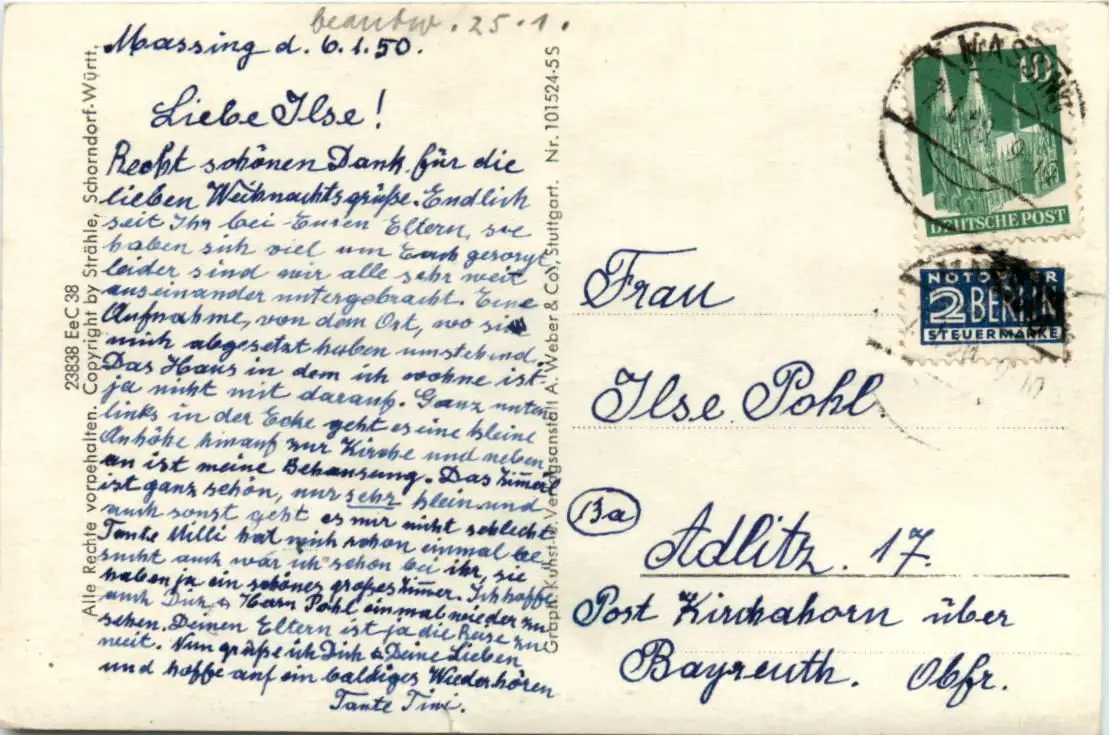 beantw. 25.1.
Massing d. 6.1.50.
Liebe Ilse!
Recht schönen Dank für die
lieben Weihnachtsgrüße. Endlich
seit Ihr bei Euren Eltern, sie
haben sich viel um Euch gesorgt
leider sind wir alle sehr weit
auseinander untergebracht. Eine
Aufnahme, von dem Ort, wo sie
mich abgesetzt haben umstehend.
Das Haus in dem ich wohne ist
ja nicht mit darauf. Ganz unten
links in der Ecke geht es eine kleine
Anhöhe hinauf zur Kirche und neben
an ist meine Behausung. Das Zimmerl
ist ganz schön, nur sehr klein und
auch sonst geht es mir nicht schlecht
Tante Milli hat mich schon einmal be
sucht auch war ich schon bei ihr, sie
haben ja ein schönes großes Zimmer. Ich hoffe
auch Dich & Herrn Pohl einmal wieder zu
sehen. Deinen Eltern ist ja die Reise zu
weit. Nun grüße ich Dich & Deine Lieben
und hoffe auf ein baldiges Wiederhören
Tante Tini.
23838 EeC 38
Alle Rechte vorbehalten. Copyright by Strähle, Schorndorf-Württ.
Graph. Kunst- u. Verlagsanstalt A. Weber & Co., Stuttgart. Nr. 101524-5S
MASSING
10
DEUTSCHE POST
NOTOPFER
2 BERLIN
STEUERMARKE
Frau
Ilse Pohl
13a
Adlitz. 17.
Post Kirchahorn über
Bayreuth. Obfr.